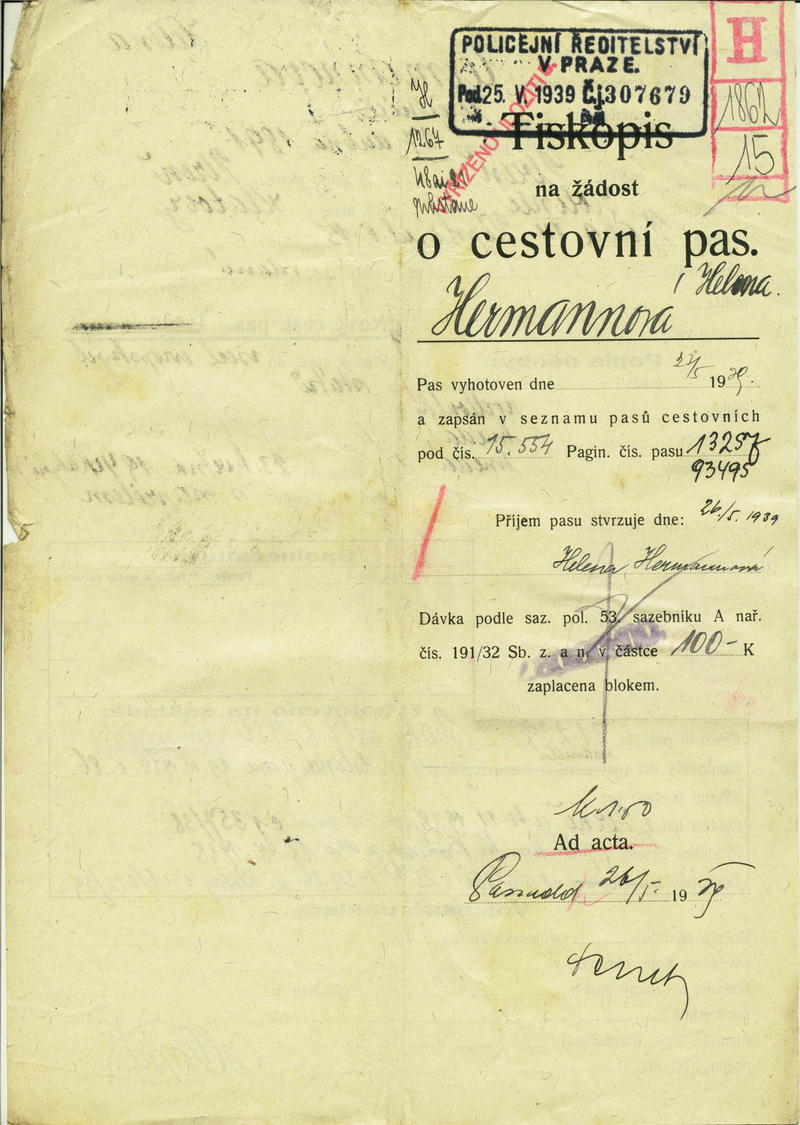 POLICEJNÍ ŘEDITELSTVÍ
V PRAZE.
Pod. 25. V. 1939 Čj 307679
H
1862
15
H
1267
Tiskopis
na žádost
o cestovní pas.
Helena
Hermannová
Pas vyhotoven dne 1939.
a zapsán v seznamu pasů cestovních
pod čís. 15.554 Pagin. čís. pasu 13257
93495
Příjem pasu stvrzuje dne: 26./5. 1939
Helena Hermannová
Dávka podle saz. pol. 53. sazebníku A nař.
čís. 191/32 Sb. z. a n. v částce 100- K
zaplacena blokem.
Ad acta.
26/5. 1939